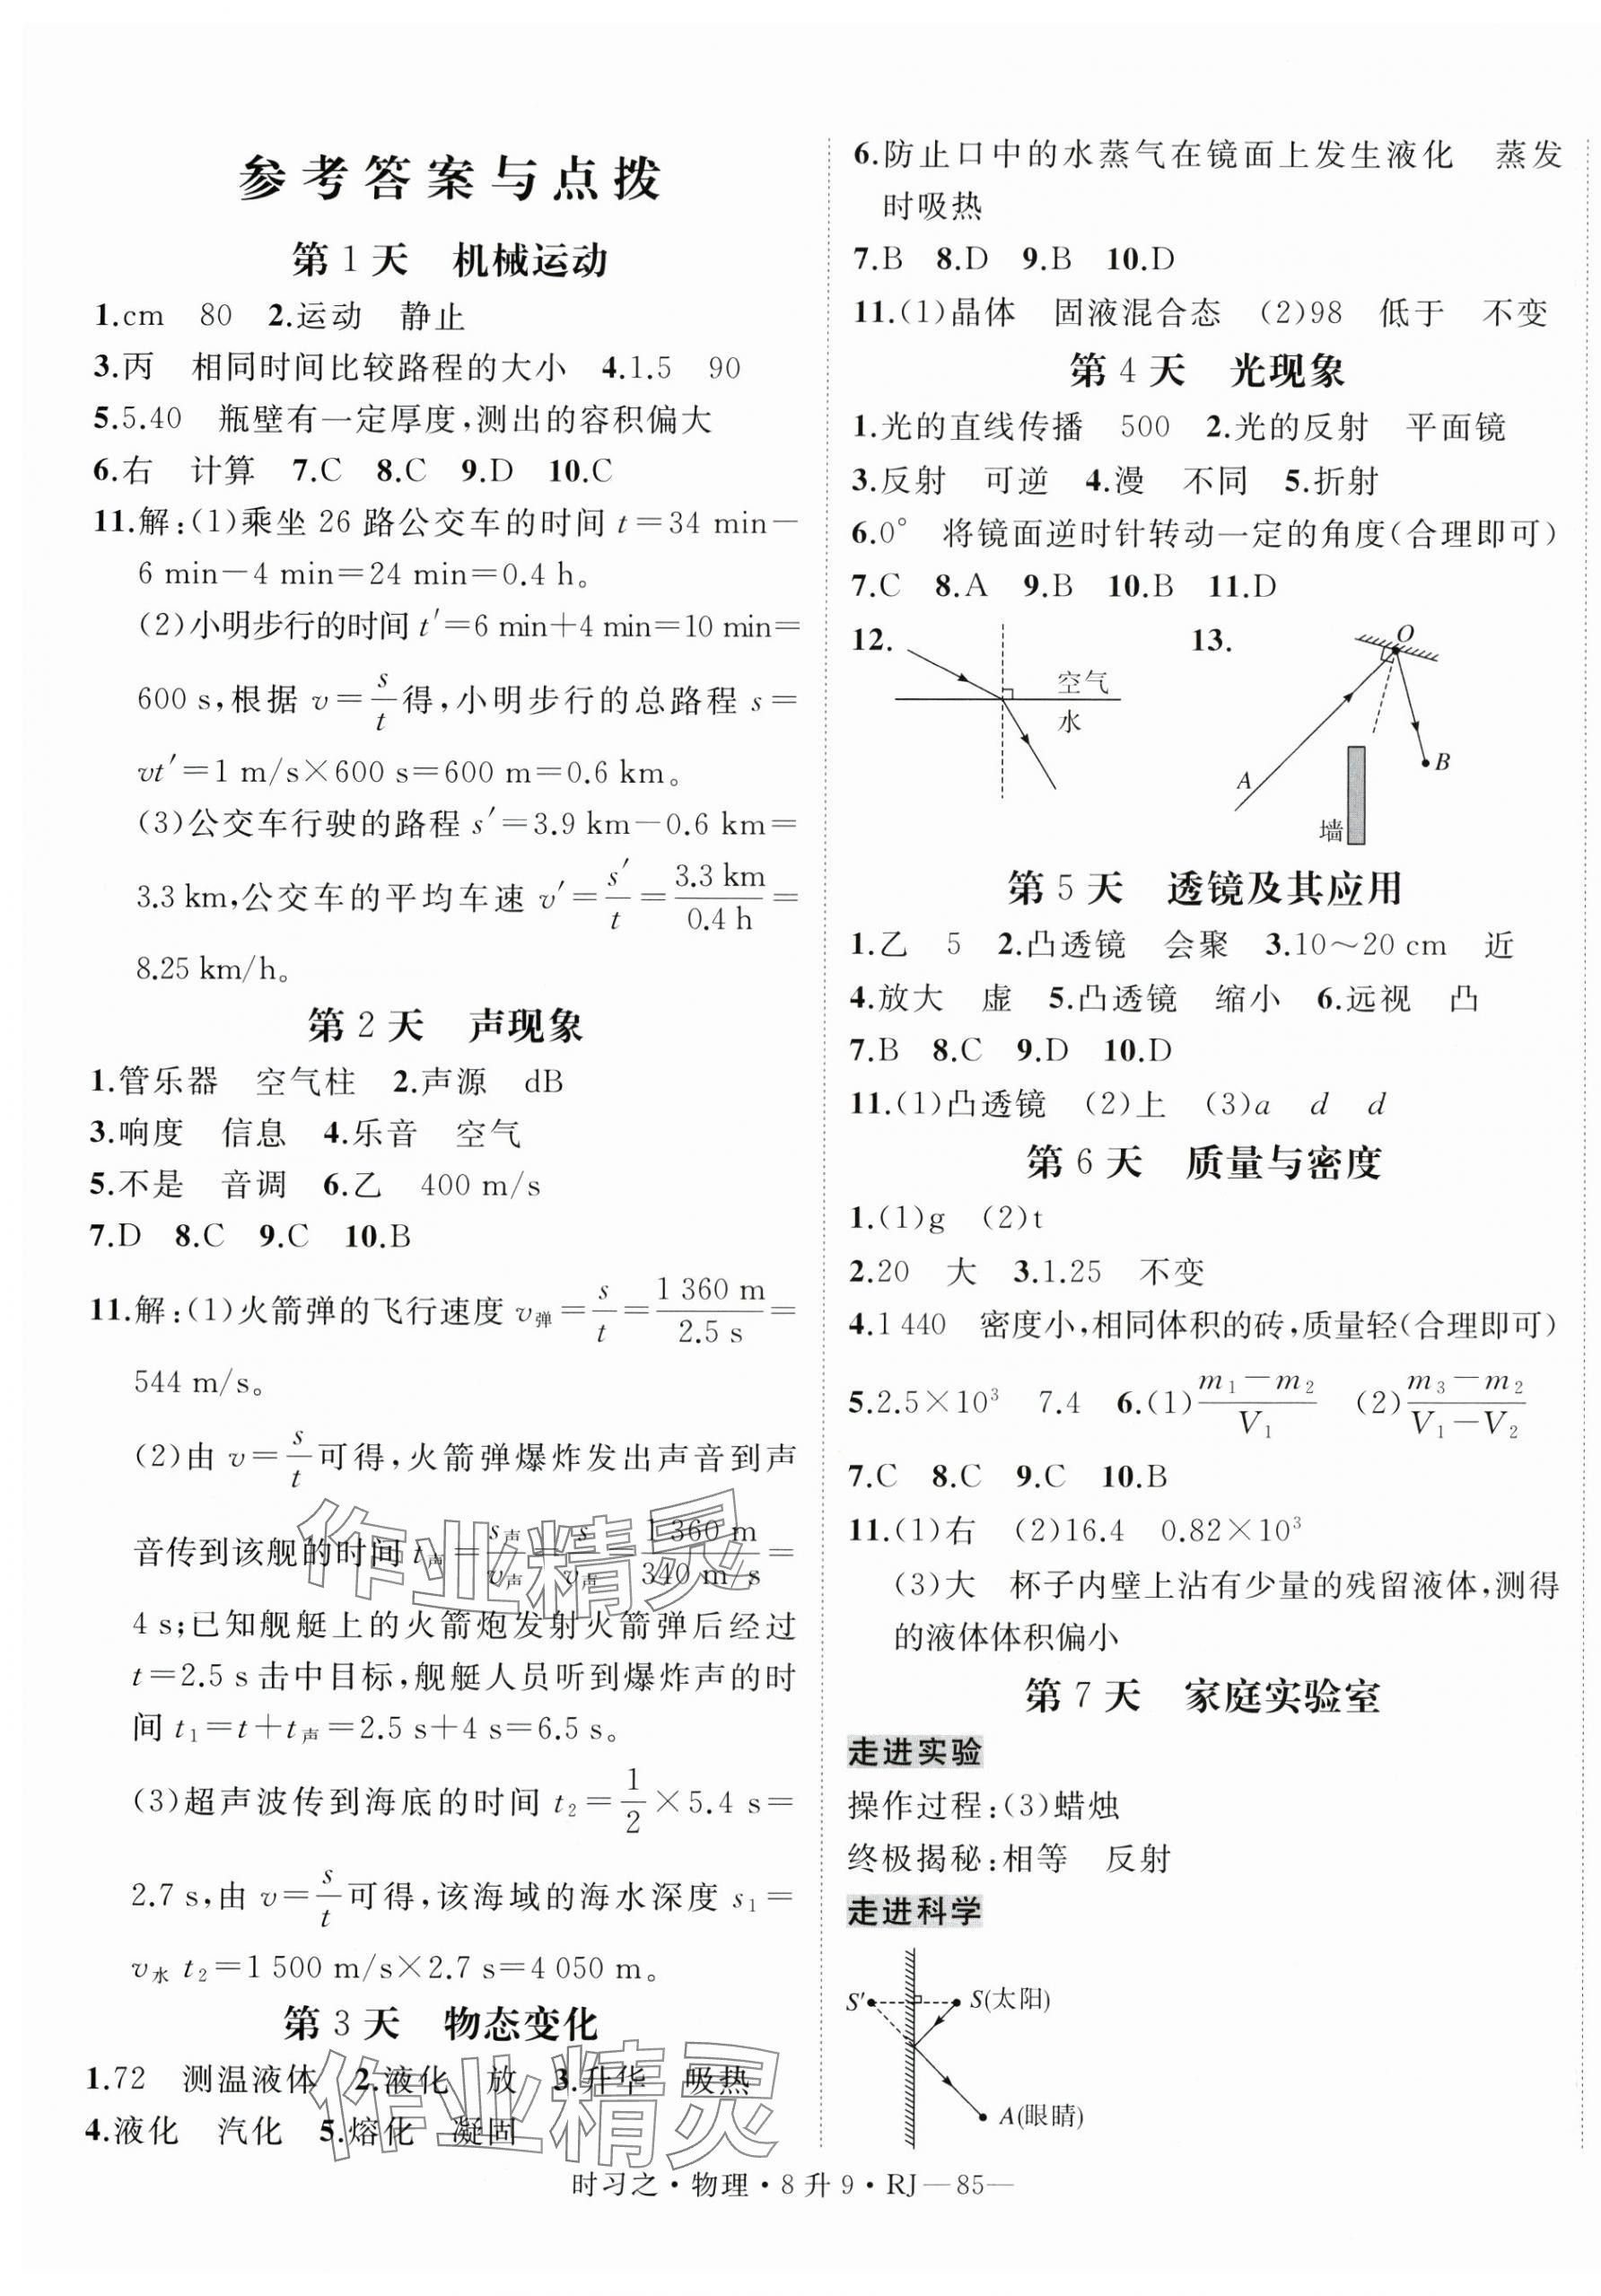 参考答案与点拨
第1天 机械运动
1.cm 80 2.运动 静止
3.丙 相同时间比较路程的大小 4.1.5 90
5.5.40 瓶壁有一定厚度,测出的容积偏大
6.右 计算 7.C 8.C 9.D 10.C
11.解:(1)乘坐 26 路公交车的时间 t=34 min-
6 min-4 min=24 min=0.4 h。
(2)小明步行的时间 t′=6 min+4 min=10 min=
600 s,根据 v=s/t得,小明步行的总路程 s=
vt′=1 m/s×600 s=600 m=0.6 km。
(3)公交车行驶的路程 s′=3.9 km-0.6 km=
3.3 km,公交车的平均车速 v′=s′/t=3.3 km/0.4 h=
8.25 km/h。
第2天 声现象
1.管乐器 空气柱 2.声源 dB
3.响度 信息 4.乐音 空气
5.不是 音调 6.乙 400 m/s
7.D 8.C 9.C 10.B
11.解:(1)火箭弹的飞行速度 v弹=s/t=1 360 m/2.5 s=
544 m/s。
(2)由 v=s/t可得,火箭弹爆炸发出声音到声
音传到该舰的时间 t声=s声/v声=s/v声=1 360 m/340 m/s=
4 s;已知舰艇上的火箭炮发射火箭弹后经过
t=2.5 s 击中目标,舰艇人员听到爆炸声的时
间 t₁=t+t声=2.5 s+4 s=6.5 s。
(3)超声波传到海底的时间 t₂=1/2×5.4 s=
2.7 s,由 v=s/t可得,该海域的海水深度 s₁=
v水 t₂=1 500 m/s×2.7 s=4 050 m。
第3天 物态变化
1.72 测温液体 2.液化 放 3.升华 吸热
4.液化 汽化 5.熔化 凝固
6.防止口中的水蒸气在镜面上发生液化 蒸发
时吸热
7.B 8.D 9.B 10.D
11.(1)晶体 固液混合态 (2)98 低于 不变
第4天 光现象
1.光的直线传播 500 2.光的反射 平面镜
3.反射 可逆 4.漫 不同 5.折射
6.0° 将镜面逆时针转动一定的角度(合理即可)
7.C 8.A 9.B 10.B 11.D
12. 空气 水
13. O A B 墙
第5天 透镜及其应用
1.乙 5 2.凸透镜 会聚 3.10～20 cm 近
4.放大 虚 5.凸透镜 缩小 6.远视 凸
7.B 8.C 9.D 10.D
11.(1)凸透镜 (2)上 (3)a d d
第6天 质量与密度
1.(1)g (2)t
2.20 大 3.1.25 不变
4.1 440 密度小,相同体积的砖,质量轻(合理即可)
5.2.5×10³ 7.4 6.(1)m₁-m₂/V₁ (2)m₃-m₂/V₁-V₂
7.C 8.C 9.C 10.B
11.(1)右 (2)16.4 0.82×10³
(3)大 杯子内壁上沾有少量的残留液体,测得
的液体体积偏小
第7天 家庭实验室
走进实验
操作过程:(3)蜡烛
终极揭秘:相等 反射
走进科学
S′ S(太阳)
A(眼睛)
时习之·物理·8升9·RJ—85—
作业精灵
作业精灵